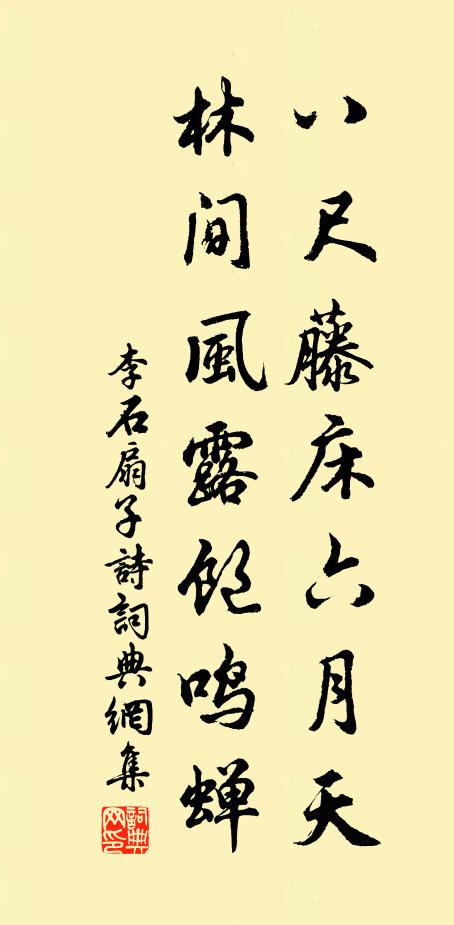 八尺藤床六月天
林间風露飽鸣蝉
李石扇子詩詞典網集
詞典网印